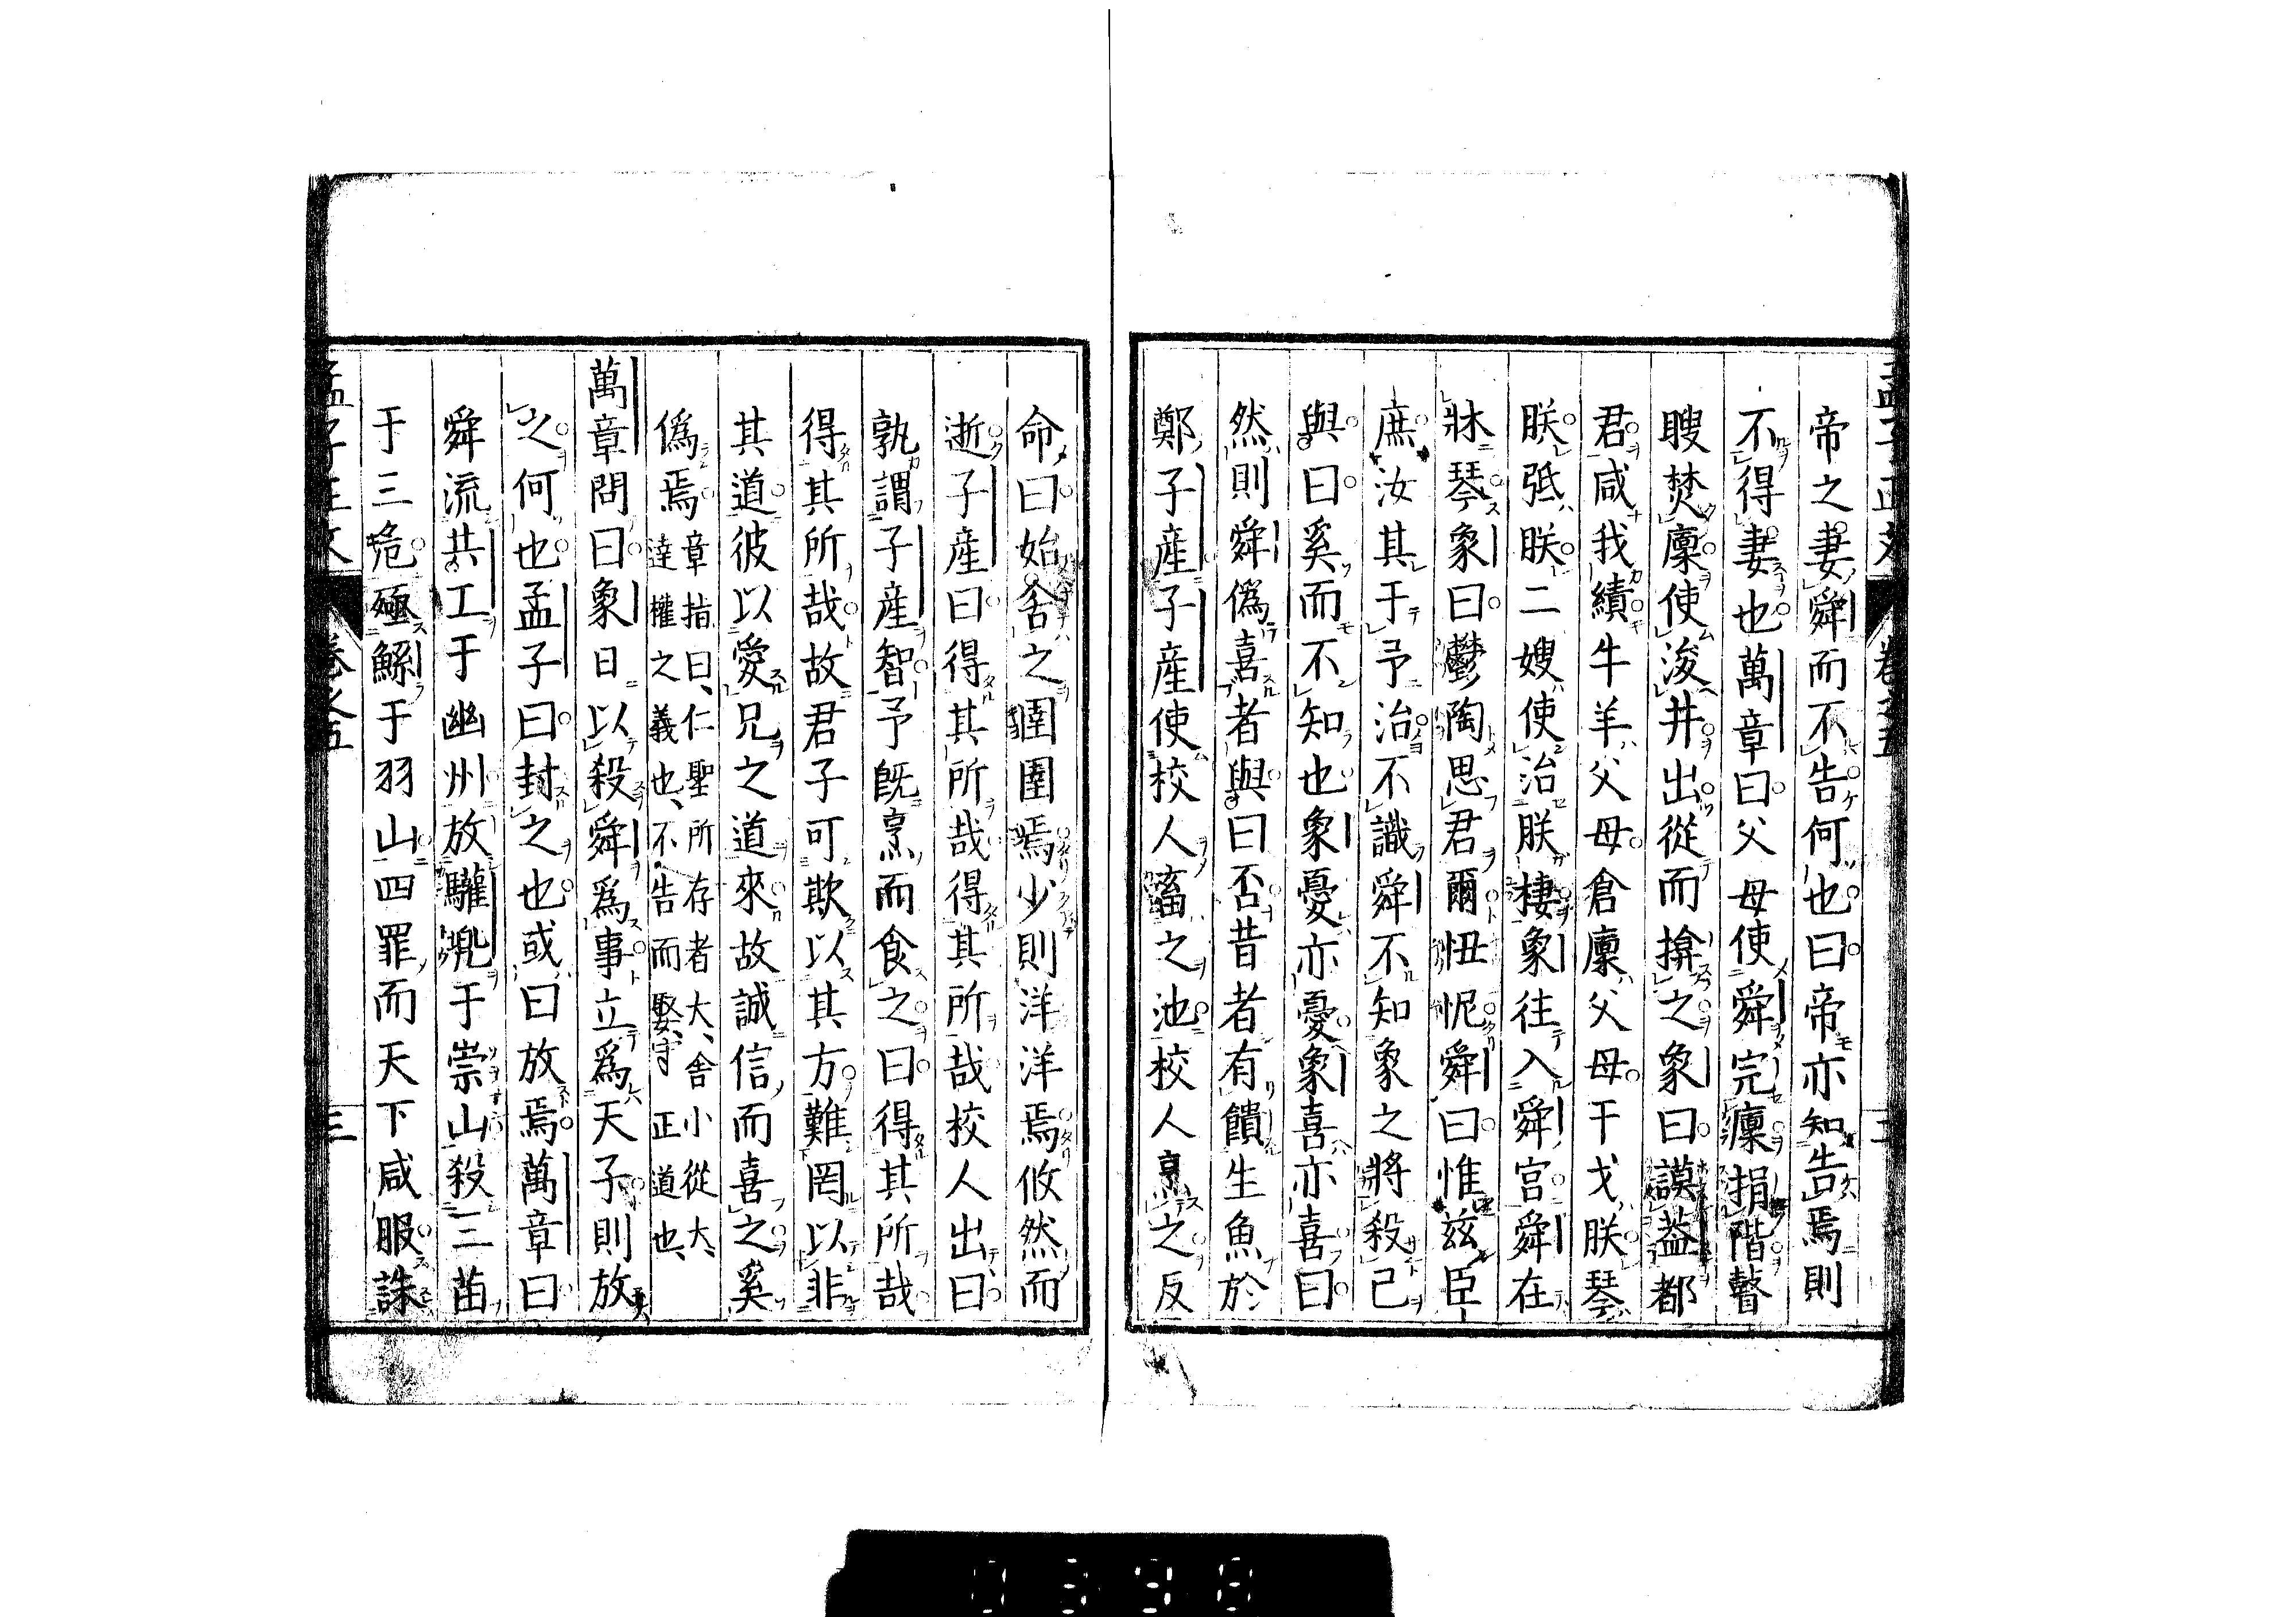 帝之妻舜而不告何也曰帝亦知告焉則
不得妻也萬章曰父母使舜完廩捐階瞽
瞍焚廩使浚井出從而揜之象曰謨蓋都
君咸我績牛羊父母倉廩父母干戈朕琴
朕弤朕二嫂使治朕棲象往入舜宮舜在
牀琴象曰鬱陶思君爾忸怩舜曰惟茲臣
庶汝其于予治不識舜不知象之將殺己
與曰奚而不知也象憂亦憂象喜亦喜曰
然則舜僞喜者與曰否昔者有饋生魚於
鄭子産子産使校人畜之池校人烹之反
命曰始舍之圉圉焉少則洋洋焉攸然而
逝子産曰得其所哉得其所哉校人出曰
孰謂子産智予既烹而食之曰得其所哉
得其所哉故君子可欺以其方難罔以非
其道彼以愛兄之道來故誠信而喜之奚
僞焉章指曰、仁聖所存者大、舍小從大、達權之義也、不告而娶、守正道也、
萬章問曰象日以殺舜爲事立爲天子則放
之何也孟子曰封之也或曰放焉萬章曰
舜流共工于幽州放驩兜于崇山殺三苗
于三危殛鯀于羽山四罪而天下咸服誅
卷之五
三